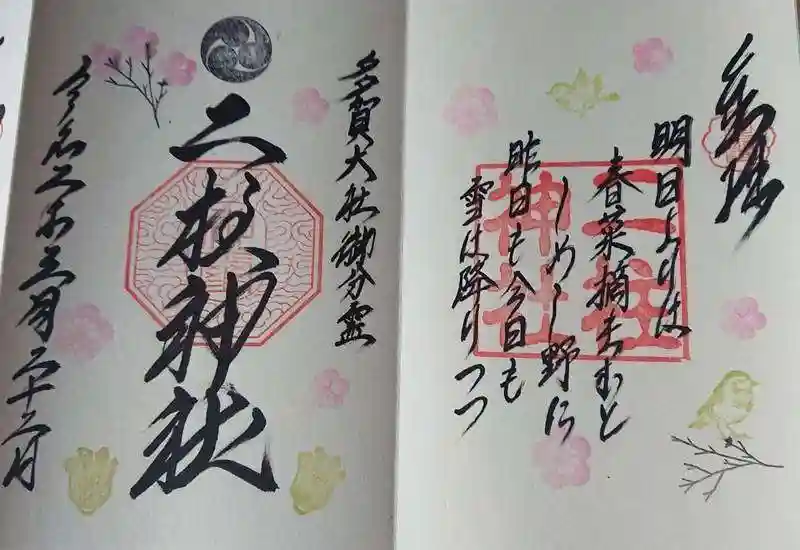 奉拝
明日よりは
春菜摘まむと
しめし野に
昨日も今日も
雪は降りつつ
二柱
神社
多賀大社御分霊
二柱神社
令和二年三月二十三日